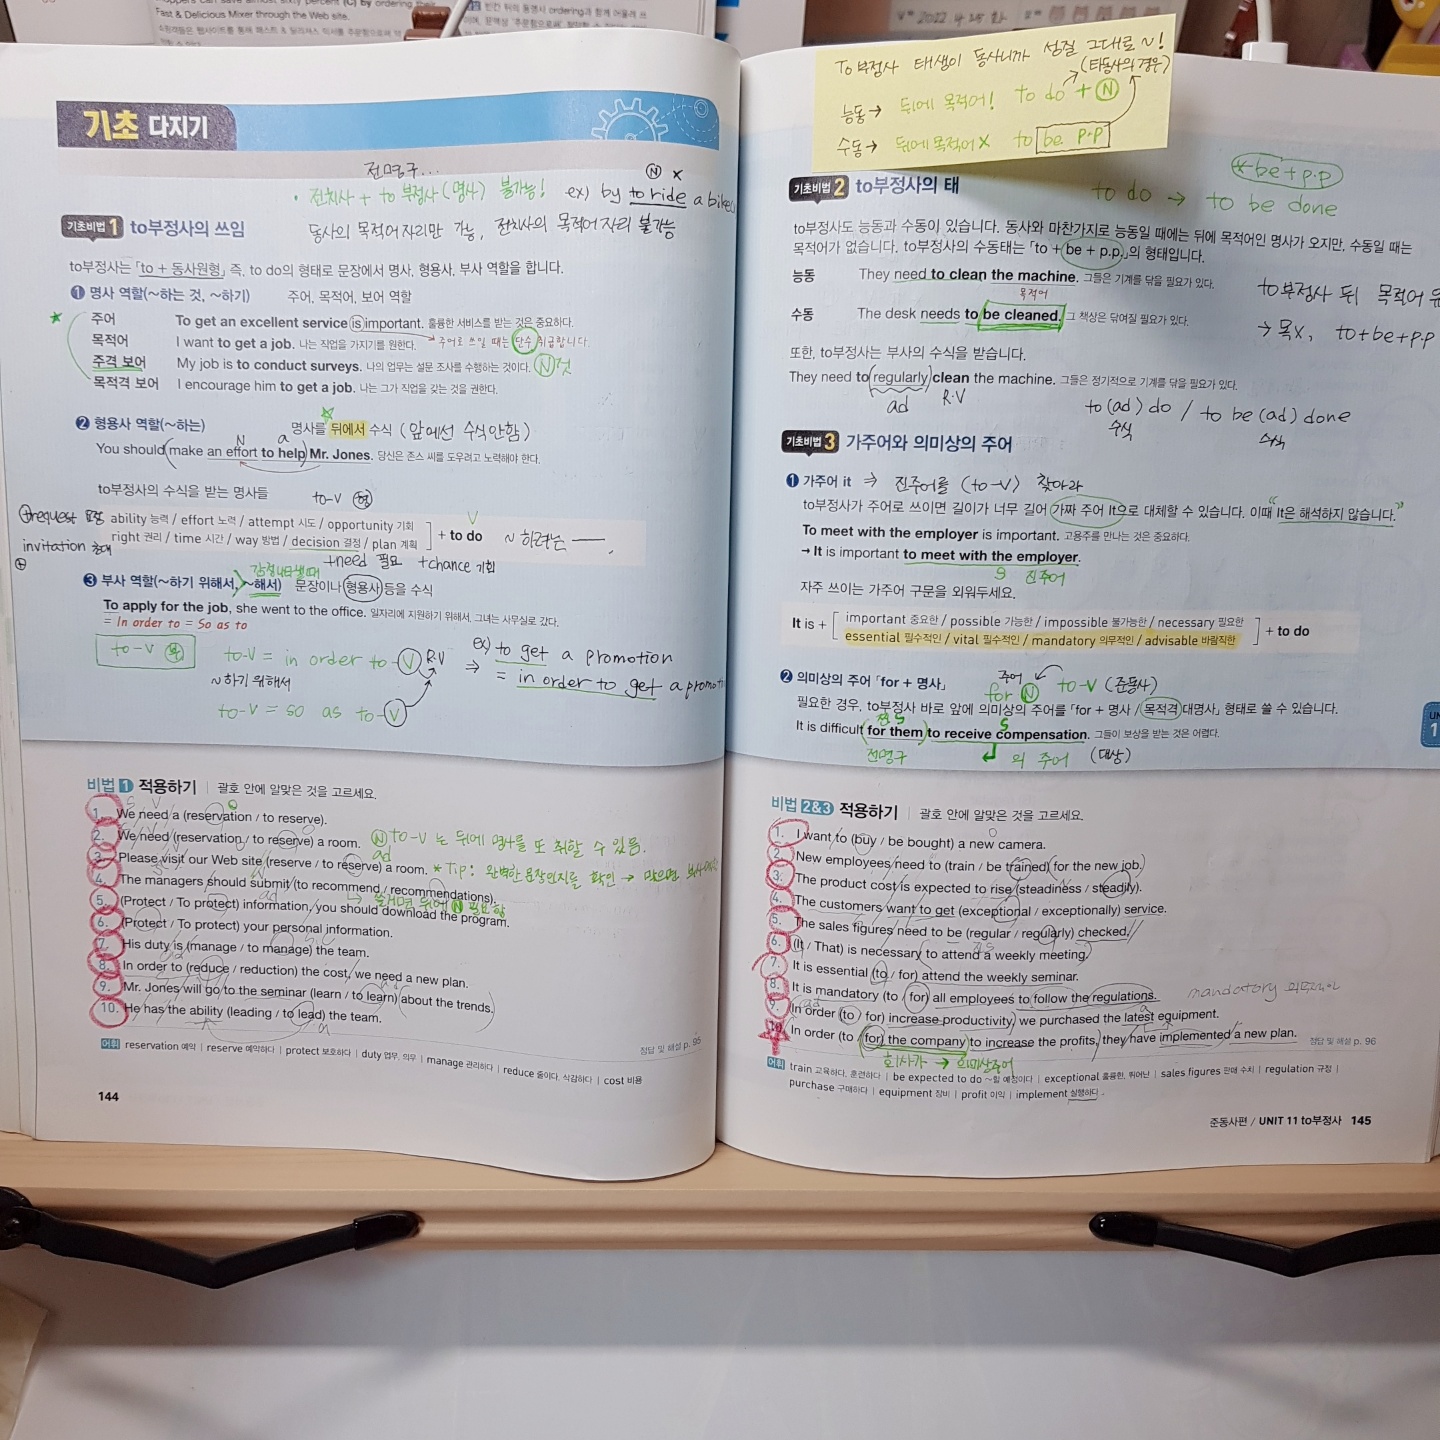 Fast & Delicious Mixer through the Web site.
기초 다지기
전명구...
· 전치사 + to 부정사(명사) 불가능! ex) by to ride a bike
Ⓝ ×
기초비법 1 to부정사의 쓰임
동사의 목적어자리만 가능, 전치사의 목적어자리 불가능
to부정사는 「to + 동사원형」 즉, to do의 형태로 문장에서 명사, 형용사, 부사 역할을 합니다.
❶ 명사 역할(~하는 것, ~하기) 주어, 목적어, 보어 역할
주어 To get an excellent service is important. 훌륭한 서비스를 받는 것은 중요하다.
목적어 I want to get a job. 나는 직업을 가지기를 원한다. → 주어로 쓰일 때는 단수 취급합니다.
주격 보어 My job is to conduct surveys. 나의 업무는 설문 조사를 수행하는 것이다. Ⓝ 것
목적격 보어 I encourage him to get a job. 나는 그가 직업을 갖는 것을 권한다.
❷ 형용사 역할(~하는) 명사를 뒤에서 수식 (앞에선 수식안함)
N a
You should make an effort to help Mr. Jones. 당신은 존스 씨를 도우려고 노력해야 한다.
to부정사의 수식을 받는 명사들 to-V 형
+request 요청 ability 능력 / effort 노력 / attempt 시도 / opportunity 기회
invitation 초대 right 권리 / time 시간 / way 방법 / decision 결정 / plan 계획 + to do ~하려는
V
+need 필요 +chance 기회
감정나타낼때
❸ 부사 역할(~하기 위해서, ~해서) 문장이나 형용사 등을 수식
To apply for the job, she went to the office. 일자리에 지원하기 위해서, 그녀는 사무실로 갔다.
= In order to = So as to
to-V 부 to-V = in order to-V R.V ex) to get a promotion
~하기 위해서 ⇒ = in order to get a promot
to-V = so as to-V
비법 1 적용하기 | 괄호 안에 알맞은 것을 고르세요.
S V
1. We need a (reservation / to reserve).
2. We need (reservation / to reserve) a room. Ⓝ to-V 는 뒤에 명사를 또 취할 수 있음.
ad
3. Please visit our Web site (reserve / to reserve) a room. * Tip: 완벽한 문장인지를 확인 → 맞으면
4. The managers should submit (to recommend / recommendations).
뒤에 Ⓝ 필요함
5. (Protect / To protect) information, you should download the program.
6. (Protect / To protect) your personal information.
7. His duty is (manage / to manage) the team.
8. In order to (reduce / reduction) the cost, we need a new plan.
9. Mr. Jones will go to the seminar (learn / to learn) about the trends.
10. He has the ability (leading / to lead) the team.
a
정답 및 해설 p. 95
어휘 reservation 예약 | reserve 예약하다 | protect 보호하다 | duty 업무, 의무 | manage 관리하다 | reduce 줄이다, 삭감하다 | cost 비용
144
To 부정사 태생이 동사니까 성질 그대로 ~!
(타동사의 경우)
능동 → 뒤에 목적어! to do + Ⓝ
수동 → 뒤에 목적어 X to be p.p
기초비법 2 to부정사의 태
*be+p.p
to do → to be done
to부정사도 능동과 수동이 있습니다. 동사와 마찬가지로 능동일 때에는 뒤에 목적어인 명사가 오지만, 수동일 때는
목적어가 없습니다. to부정사의 수동태는 「to + be + p.p.」의 형태입니다.
능동 They need to clean the machine. 그들은 기계를 닦을 필요가 있다.
목적어
to부정사 뒤 목적어
수동 The desk needs to be cleaned. 그 책상은 닦여질 필요가 있다.
→ 목X, to+be+p.p
또한, to부정사는 부사의 수식을 받습니다.
They need to regularly clean the machine. 그들은 정기적으로 기계를 닦을 필요가 있다.
ad R.V to (ad) do / to be (ad) done
수식 수식
기초비법 3 가주어와 의미상의 주어
❶ 가주어 it ⇒ 진주어를 (to-V) 찾아라
to부정사가 주어로 쓰이면 길이가 너무 길어 가짜 주어 It으로 대체할 수 있습니다. 이때 "It은 해석하지 않습니다."
To meet with the employer is important. 고용주를 만나는 것은 중요하다.
→ It is important to meet with the employer.
S 진주어
자주 쓰이는 가주어 구문을 외워두세요.
It is + important 중요한 / possible 가능한 / impossible 불가능한 / necessary 필요한
essential 필수적인 / vital 필수적인 / mandatory 의무적인 / advisable 바람직한 + to do
❷ 의미상의 주어 「for + 명사」 주어
for Ⓝ to-V (준동사)
필요한 경우, to부정사 바로 앞에 의미상의 주어를 「for + 명사 / 목적격 대명사」 형태로 쓸 수 있습니다.
It is difficult for them to receive compensation. 그들이 보상을 받는 것은 어렵다.
전명구 의 주어 (대상)
비법 2&3 적용하기 | 괄호 안에 알맞은 것을 고르세요.
1. I want to (buy / be bought) a new camera.
2. New employees need to (train / be trained) for the new job.
3. The product cost is expected to rise (steadiness / steadily).
4. The customers want to get (exceptional / exceptionally) service.
5. The sales figures need to be (regular / regularly) checked.
6. (It / That) is necessary to attend a weekly meeting.
7. It is essential (to / for) attend the weekly seminar.
8. It is mandatory (to / for) all employees to follow the regulations. mandatory
9. In order (to / for) increase productivity, we purchased the latest equipment.
10. In order (to / for) the company to increase the profits, they have implemented a new plan. 정답 및 해설 p. 96
회사가 → 의미상주어
어휘 train 교육하다, 훈련하다 | be expected to do ~할 예정이다 | exceptional 훌륭한, 뛰어난 | sales figures 판매 수치 | regulation 규정 |
purchase 구매하다 | equipment 장비 | profit 이익 | implement 실행하다
준동사편 / UNIT 11 to부정사 145